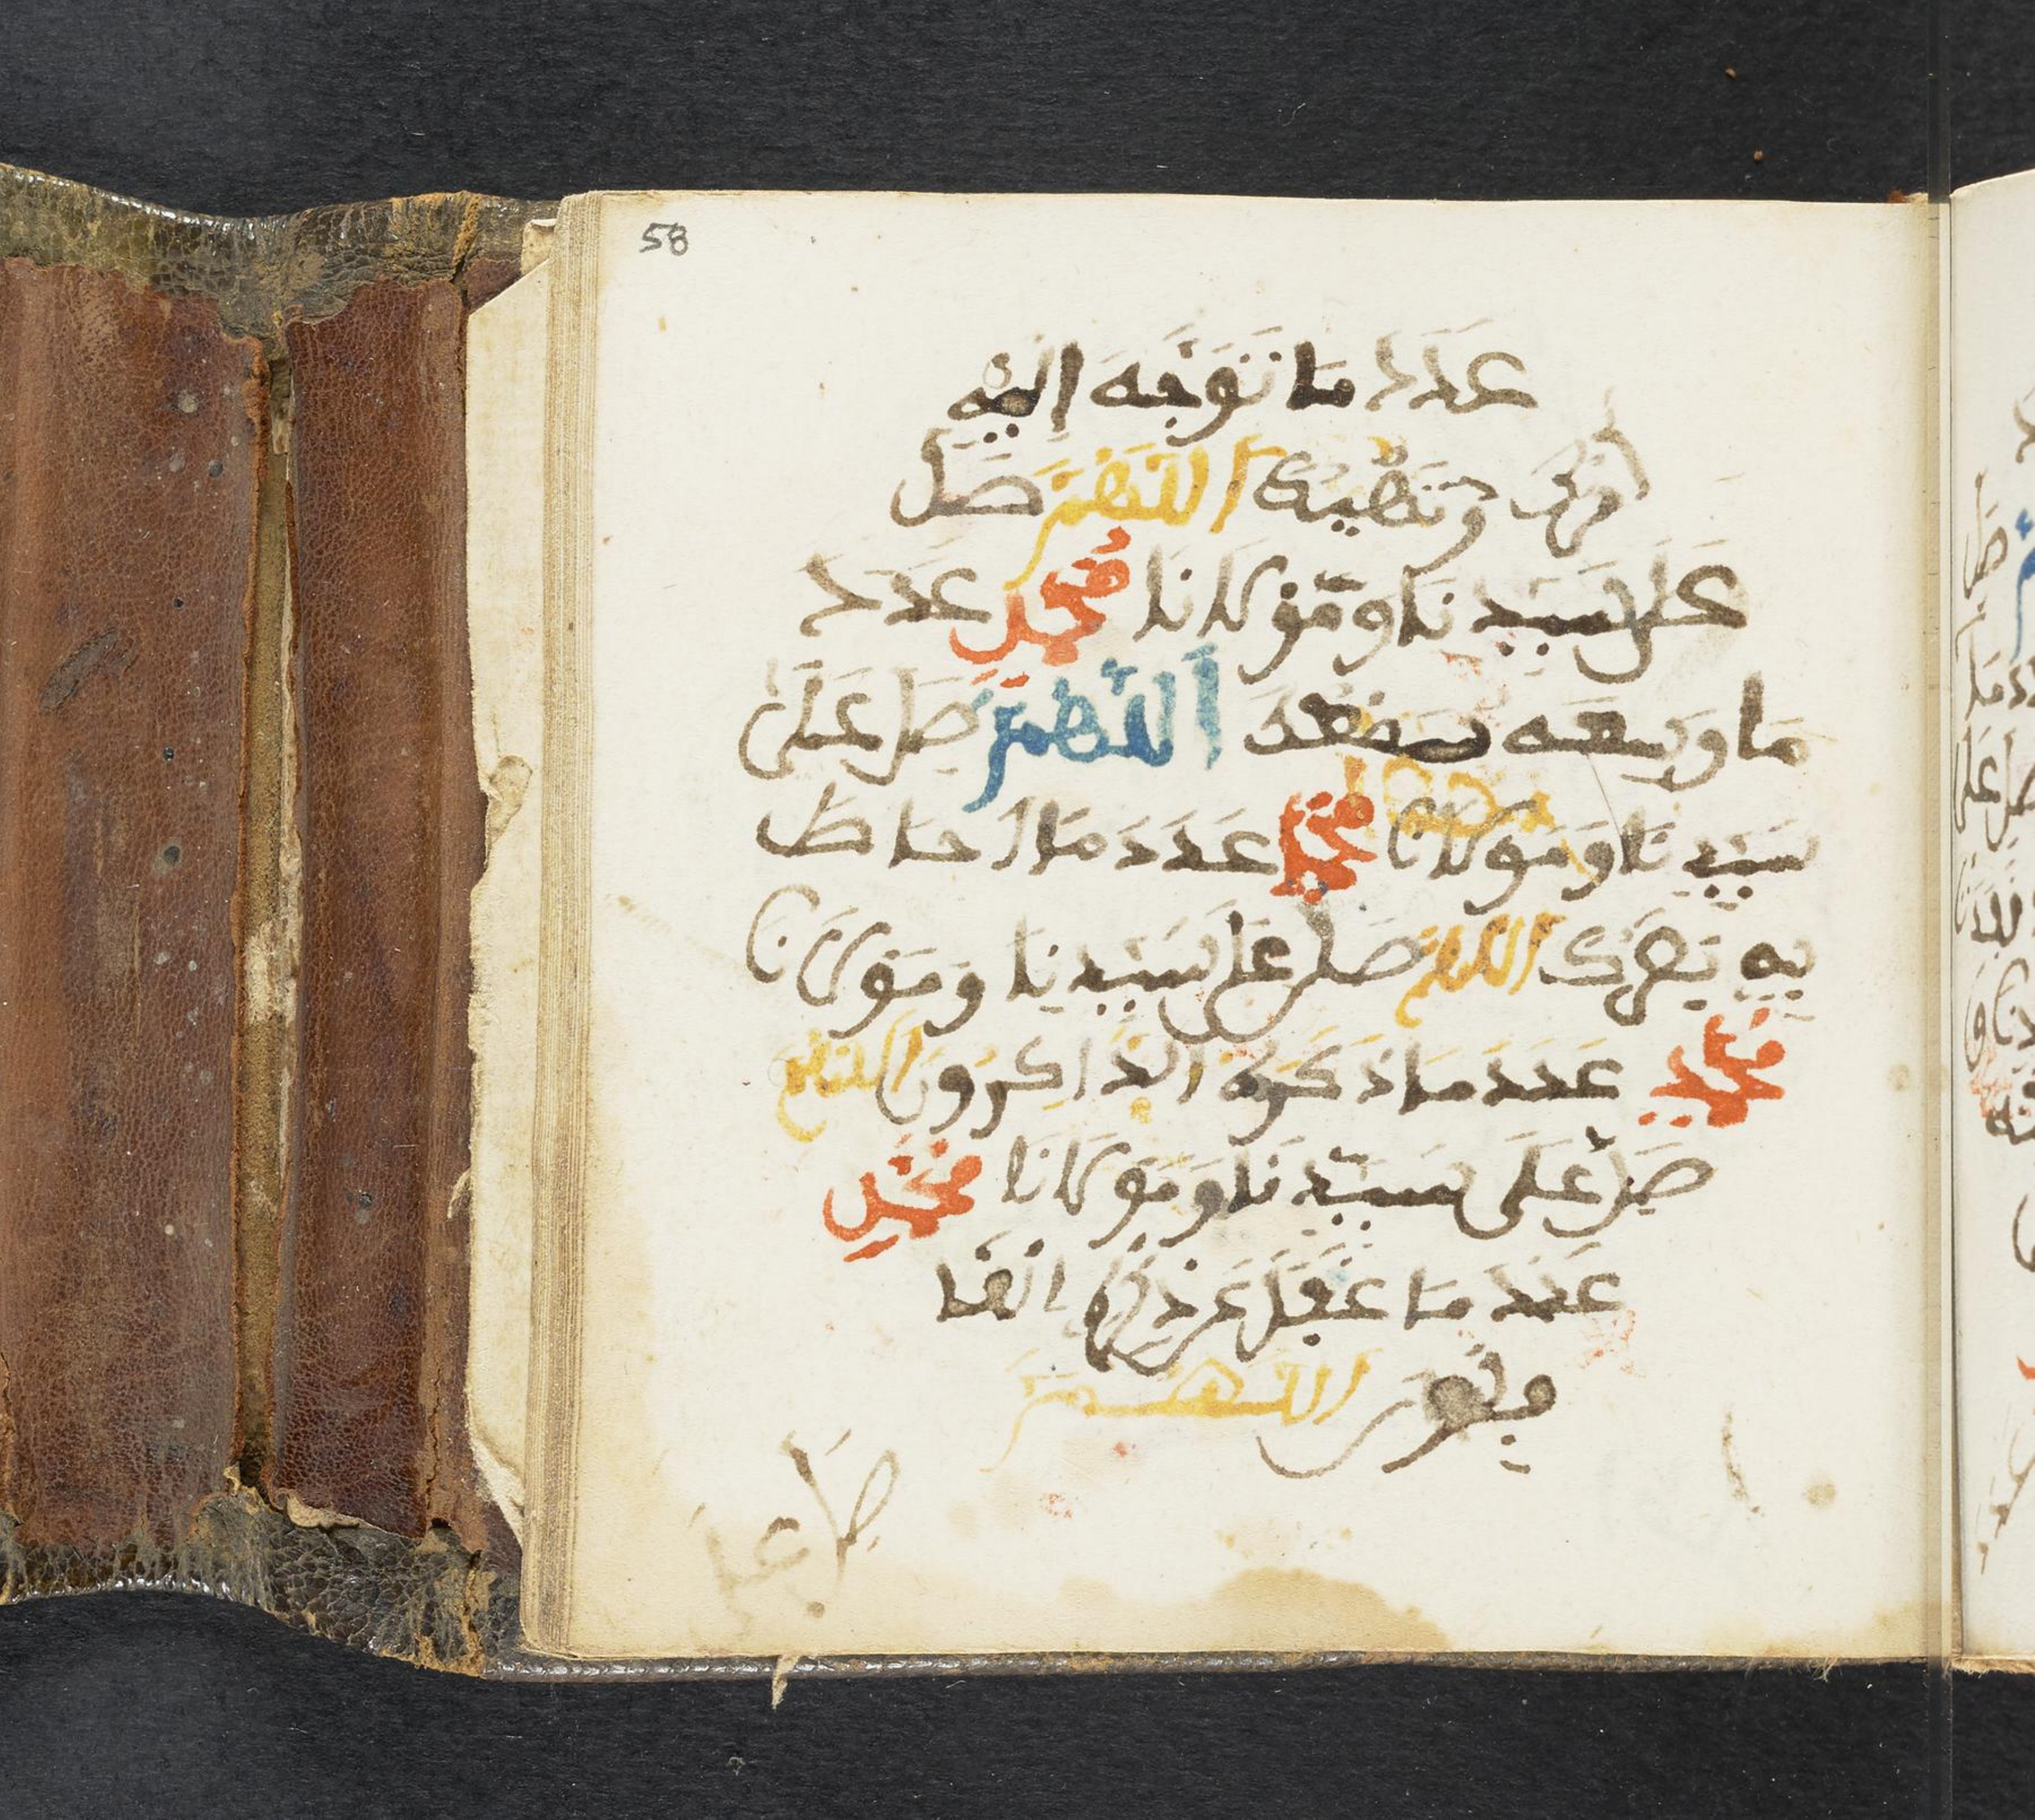 58
عَدَدَ مَا تَوَجَّهَ إِلَيْهِ
أَمْرُكَ وَنَهْيُكَ اللَّهُمَّ صَلِّ
عَلَى سَيِّدِنَا وَمَوْلَانَا مُحَمَّدٍ عَدَدَ
مَا وَسِعَهُ سَمْعُكَ اللَّهُمَّ صَلِّ عَلَى
سَيِّدِنَا وَمَوْلَانَا مُحَمَّدٍ عَدَدَ مَا أَحَاطَ
بِهِ بَصَرُكَ اللَّهُمَّ صَلِّ عَلَى سَيِّدِنَا وَمَوْلَانَا
مُحَمَّدٍ عَدَدَ مَا ذَكَرَهُ الذَّاكِرُونَ اللَّهُمَّ
صَلِّ عَلَى سَيِّدِنَا وَمَوْلَانَا مُحَمَّدٍ
عَدَدَ مَا غَفَلَ عَن ذِكْرِهِ الْغَا
فِلُونَ اللَّهُمَّ
صَلِّ عَلَى